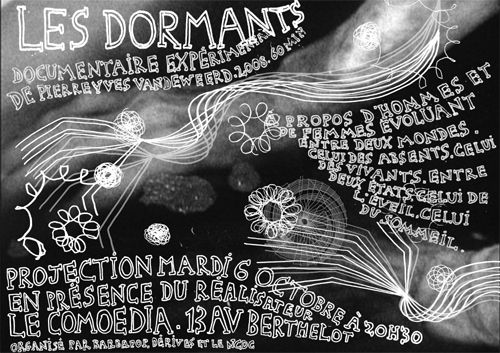 LES DORMANTS
DOCUMENTAIRE EXPÉRIMENTAL
DE PIERREYVES VANDEWEERD. 2008. 60 MIN
A PROPOS D'HOMMES ET
DE FEMMES ÉVOLUANT
ENTRE DEUX MONDES.
CELUI DES ABSENTS. CELUI
DES VIVANTS. ENTRE
DEUX ÉTATS. CELUI DE
L'ÉVEIL. CELUI
DU SOMMEIL..
PROJECTION MARDI 6 OCTOBRE À 20H30
EN PRÉSENCE DU RÉALISATEUR
LE COMOEDIA. 13 AV BERTHELOT
ORGANISÉ PAR BARBATOP, DÉRIVES ET LE